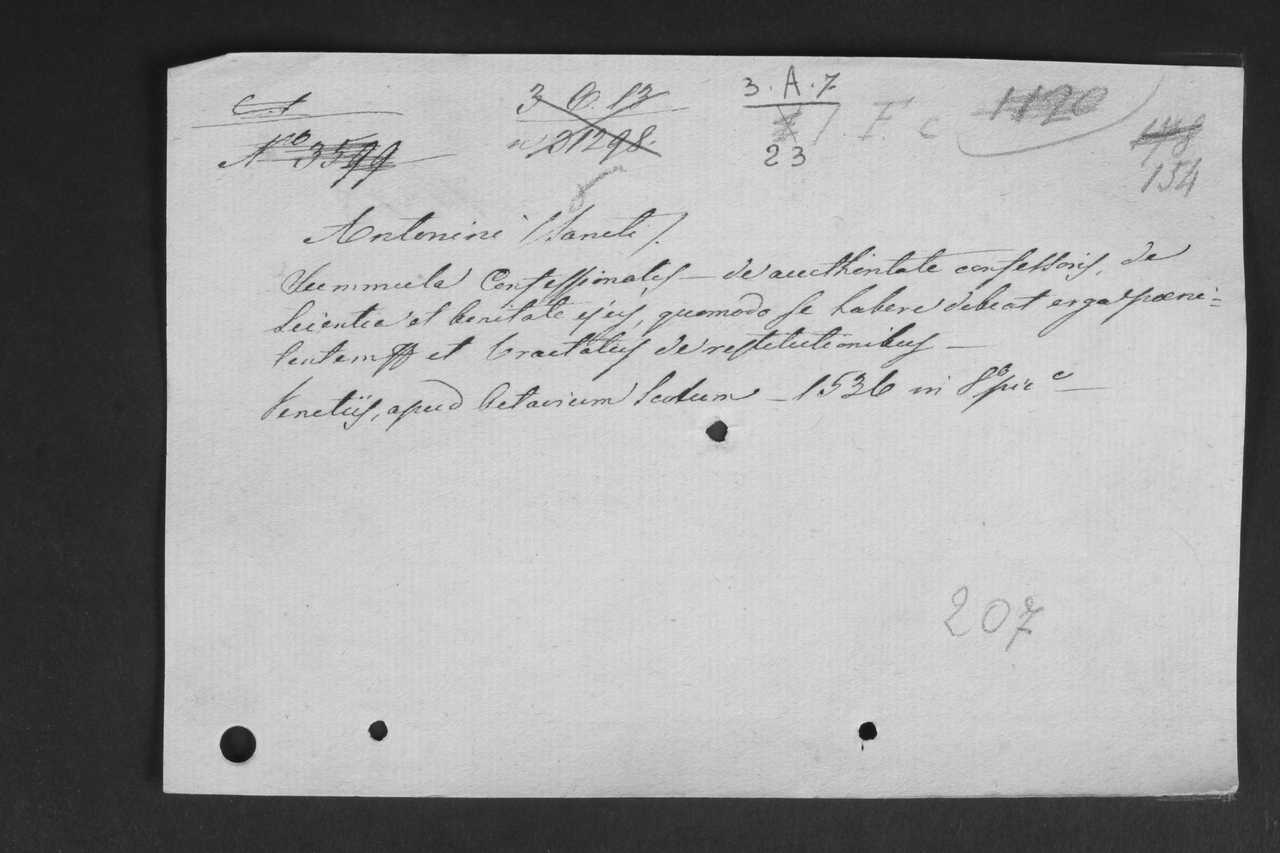 3 . A . 7
N.º 3599
3 O. 13
n.º 21298.
23
F. c
1120
178
154
Antonini (Sancti).
Summula Confessionalis – de aucthoritate confessoris, de
scientia et bonitate ejus, quomodo se habere debeat erga pœni=
tentem et tractatus de restitutionibus –
Venetiis, apud Octavium Scotum – 1536 in 8º
207